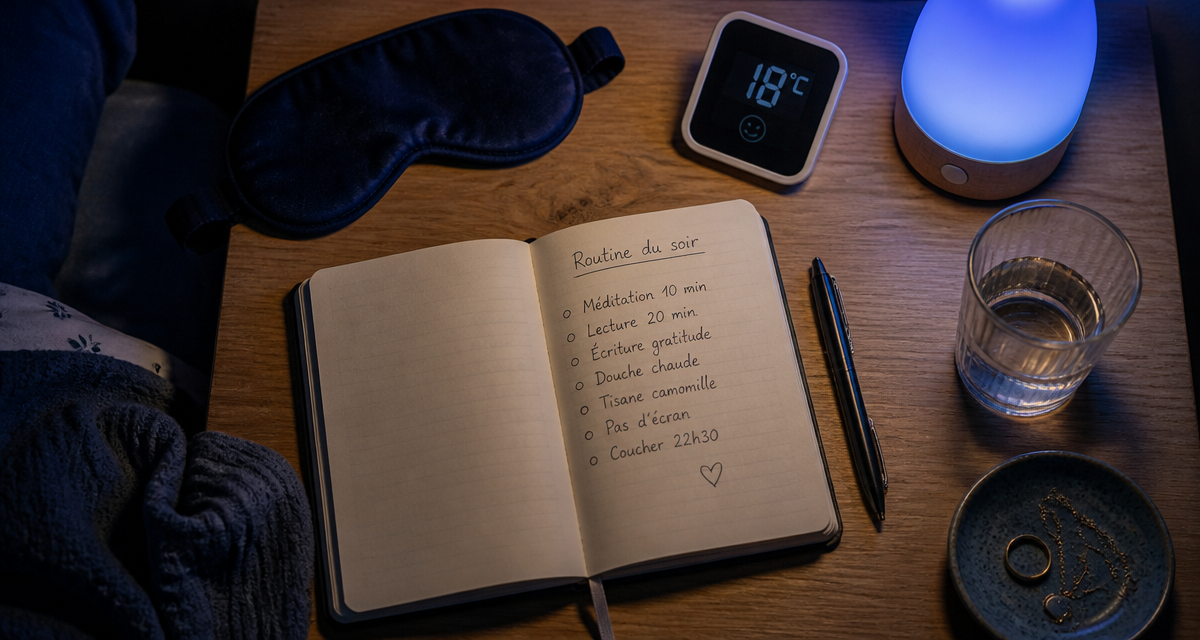 18°C
Routine du soir
Méditation 10 min.
Lecture 20 min.
Écriture gratitude
Douche chaude
Tisane camomille
Pas d'écran
Coucher 22h30